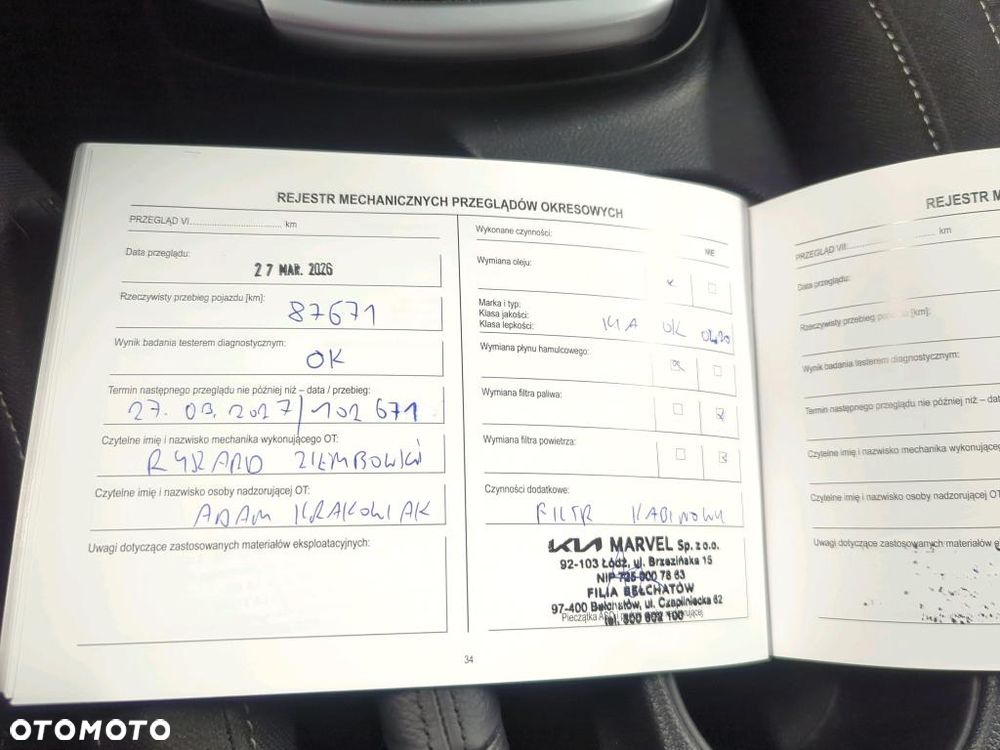 REJESTR MECHANICZNYCH PRZEGLĄDÓW OKRESOWYCH
PRZEGLĄD VI.................................... km
Data przeglądu:
27 MAR. 2026
Rzeczywisty przebieg pojazdu [km]:
87671
Wynik badania testerem diagnostycznym:
OK
Termin następnego przeglądu nie później niż – data / przebieg:
27. 03. 2027/102 671
Czytelne imię i nazwisko mechanika wykonującego OT:
Czytelne imię i nazwisko osoby nadzorującej OT:
ADAM KRAKOWIAK
Uwagi dotyczące zastosowanych materiałów eksploatacyjnych:
Wykonane czynności:
NIE
Wymiana oleju:
Marka i typ:
Klasa jakości:
Klasa lepkości:
KIA OK 0W20
Wymiana płynu hamulcowego:
Wymiana filtra paliwa:
Wymiana filtra powietrza:
Czynności dodatkowe:
FILTR KABINOWY
KIA MARVEL Sp. z o.o.
92-103 Łódź, ul. Brzezińska 15
NIP 725 000 78 63
FILIA BEŁCHATÓW
97-400 Bełchatów, ul. Czapliniecka 62
tel. 800 602 100
34
REJESTR M
PRZEGLĄD VII: km
Data przeglądu:
Rzeczywisty przebieg pojazdu [km]:
Wynik badania testerem diagnostycznym:
Termin następnego przeglądu nie później niż – dat
Czytelne imię i nazwisko mechanika wykonująceg
Czytelne imię i nazwisko osoby nadzorującej OT:
Uwagi dotyczące zastosowanych materiałów e
OTOMOTO